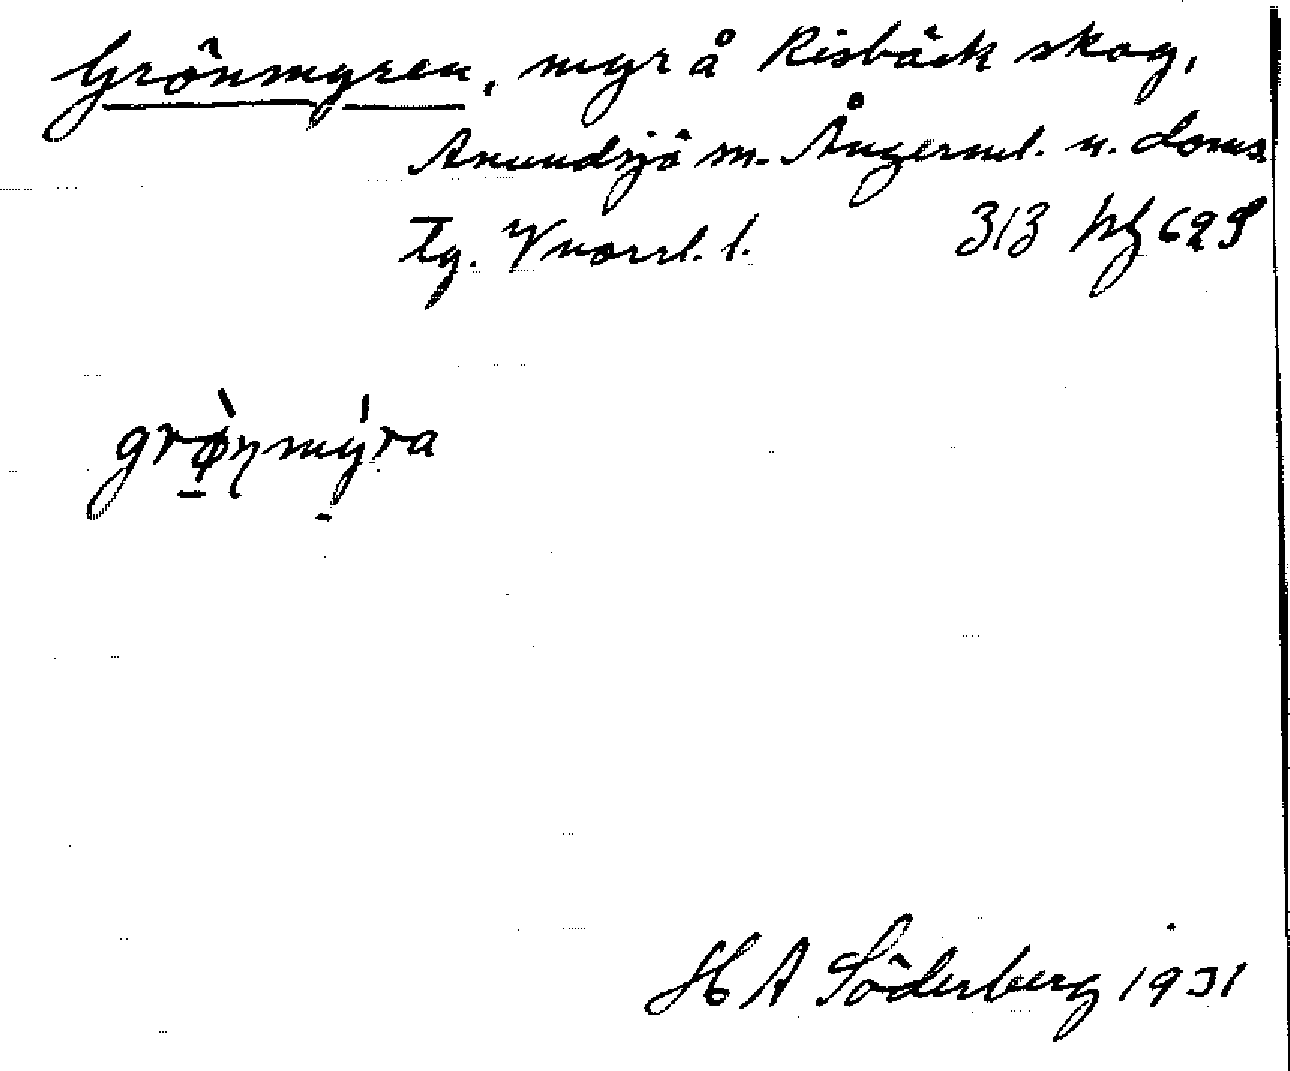 Grönmyren, myr å Risbäck skog,
Anundsjö sn. Ångerml. n. doms
Tg. Vnorrl. l. 313 hg 629
grø̀nmýra
H A Söderberg 1931